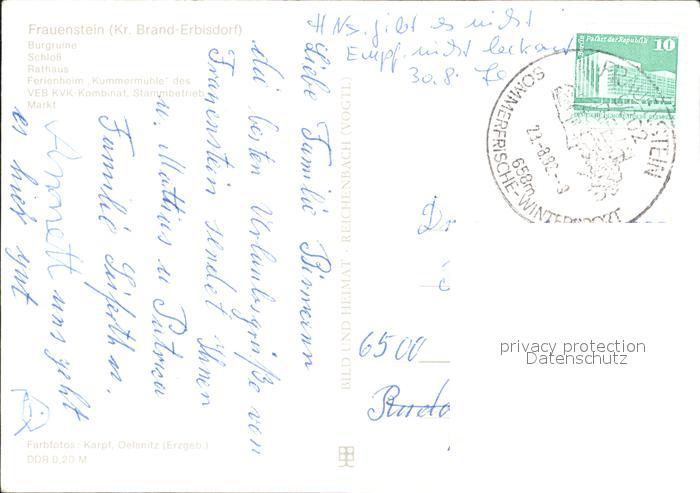 Frauenstein (Kr. Brand-Erbisdorf)
Burgruine
Schloß
Rathaus
Ferienheim „Kummermühle“ des
VEB KVK-Kombinat, Stammbetrieb
Markt
Liebe Familie
die besten Urlaubsgrüße von
Frauenstein sendet Ihnen
Familie Seiferth u.
u. Mattias u Patricia
Annett uns geht
es hier gut
Farbfotos: Karpf, Oelsnitz (Erzgeb.)
DDR 0,20 M
BILD UND HEIMAT · REICHENBACH (VOGTL
gibt es nicht
Empf. nicht bekannt
30.8.
Berlin Palast der Republik
10
DEUTSCHE DEMOKRATISCHE REPUBLIK
FRAUENSTEIN
23.-8.82.-9
658m
SOMMERFRISCHE-WINTERSPORT
6500
privacy protection
Datenschutz